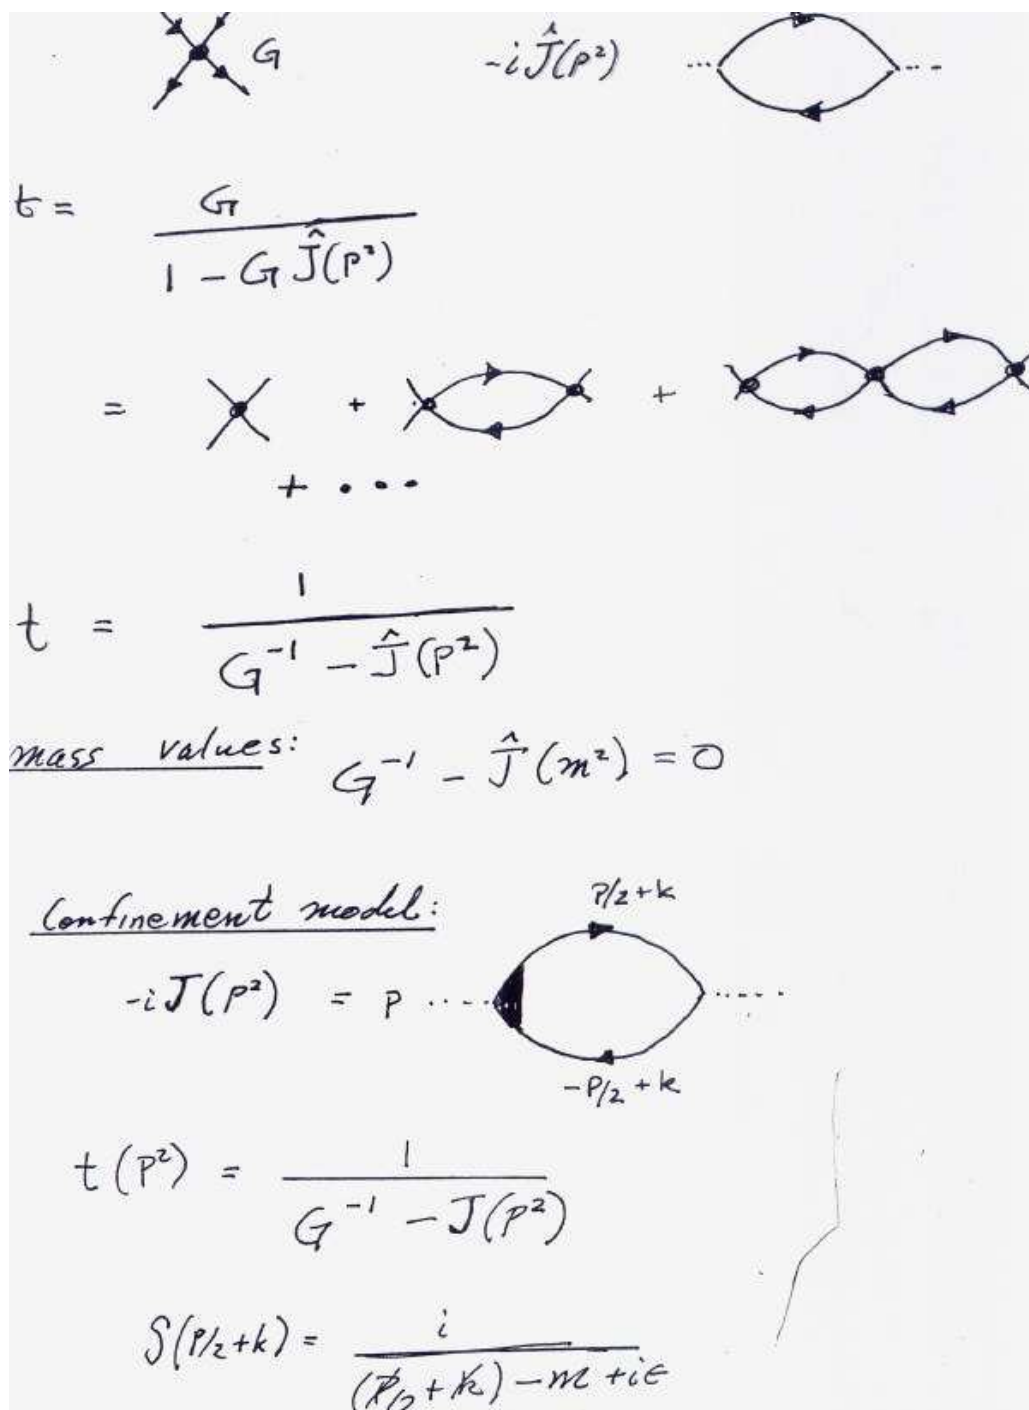 G
-i Ĵ(P²)
t = G / (1 - G Ĵ(P²))
= + +
+ • • •
t = 1 / (G⁻¹ - Ĵ(P²))
mass values: G⁻¹ - Ĵ(m²) = 0
Confinement model:
P/2 + k
-i J(P²) = P
-P/2 + k
t(P²) = 1 / (G⁻¹ - J(P²))
S(P/2 + k) = i / ((P̸/2 + k̸) - m + iϵ)